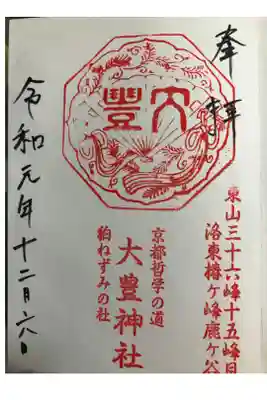 奉拝
東山三十六峰十五峰目
洛東椿ヶ峰鹿ヶ谷
大豐
京都哲学の道
大豊神社
狛ねずみの社
令和元年十二月六日